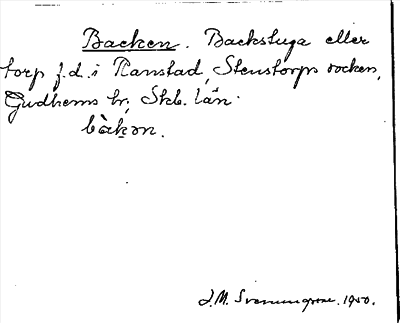 Backen. Backstuga eller
torp f.d. i Ranstad, Stenstorps socken,
Gudhems hr, Skb. län.
bàkən.
J.M. 1950.